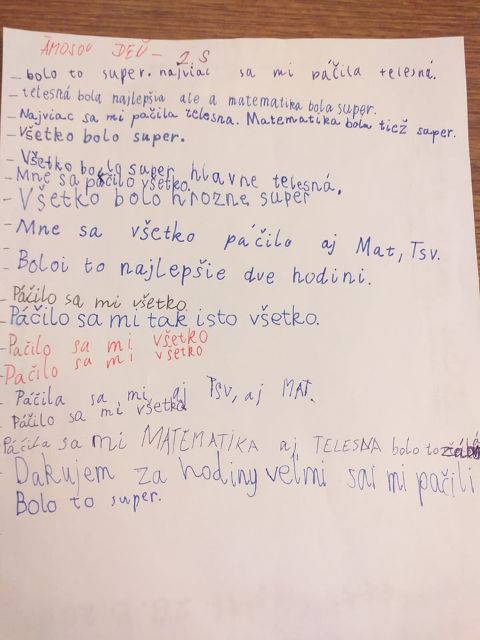 ÁMOSOV DEŇ - 2.S
- bolo to super. najviac sa mi páčila telesná.
- telesná bola najlepšia ale a matematika bola super.
- Najviac sa mi pačila telesna. Matematika bola tiež super.
- Všetko bolo super.
- Všetko bolo super hlavne telesná.
- Mne sa páčilo všetko.
- Všetko bolo hrozne super
- Mne sa všetko páčilo aj Mat, Tsv.
- Boloi to najlepšie dve hodini.
- Páčilo sa mi všetko
- Páčilo sa mi tak isto všetko.
- Pačilo sa mi všetko
- Pačilo sa mi všetko
- Páčila sa mi aj TSV, aj MAT.
- Páčilo sa mi všetko
- Páčila sa mi MATEMATIKA aj TELESNA bolo to
- Dakujem za hodiny veľmi sa mi pačili
- Bolo to super.